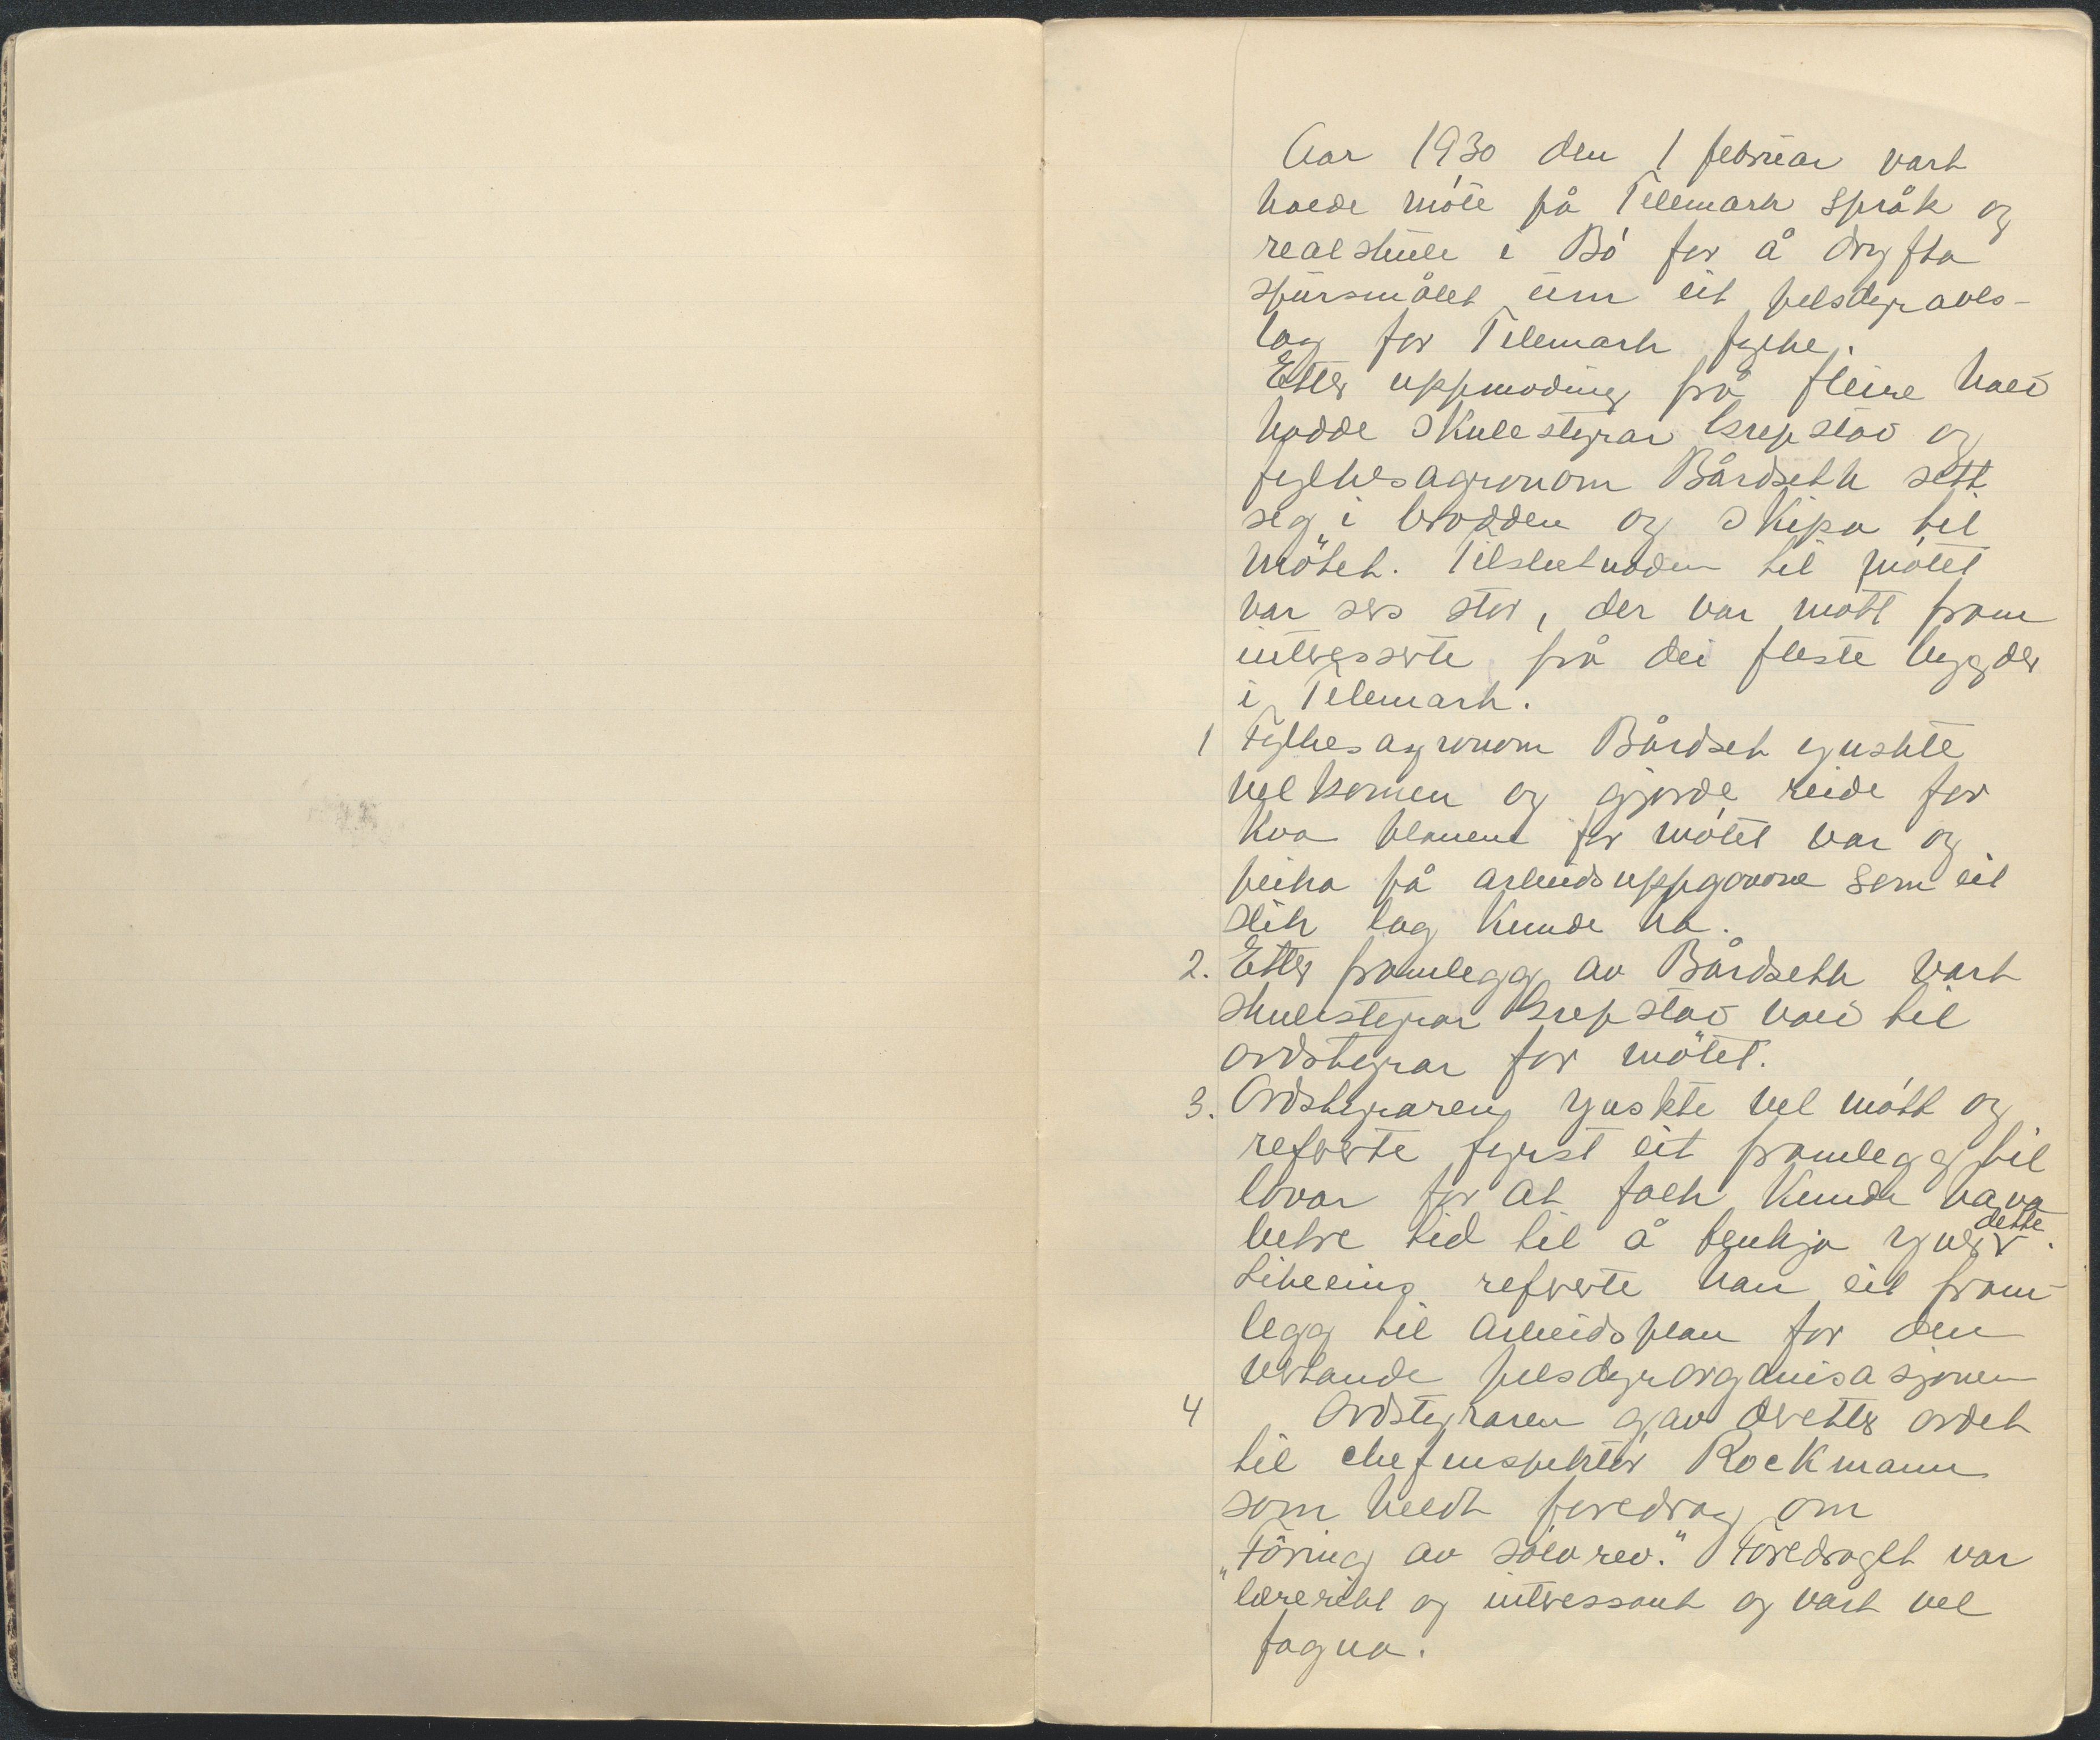 Aar 1930 den 1 februar vart
halde möte på Telemark språk og
realskule i Bö for å dryfta
spursmålet um eit pelsdyravls-
lag for Telemark fylke.
Etter uppmoding frå fleire hald
hadde skulestyrar Grepstad og
fylkesagronom Bårdseth sett
seg i brodden og skipa til
mötet. Tilslutnaden til mötet
var sers stor, der var mött fram
interesserte frå dei fleste bygder
i Telemark.
1 Fylkesagronom Bårdset ynskte
velkomen og gjorde reide for
kva planene for mötet var og
peika på arbeidsuppgavone som eit
slik lag kunde ha.
2. Etter framlegg av Bårdseth vart
skulestyrar Grepstad vald til
ordstyrar for mötet.
3. Ordstyraren ynskte vel mött og
refererte fyrst eit framlegg til
lovar for at folk kunde hava
betre tid til å tenkja yver dette.
Likeeins refererte han eit fram-
legg til arbeidsplan for den
vertande pelsdyrorganisasjonen
4 Ordstyraren gav deretter ordet
til chefinspektör Rockmann
som heldt foredrag om
„Fôring av sölvrev." Foredraget var
lærerikt og interessant og vart vel
fagna.